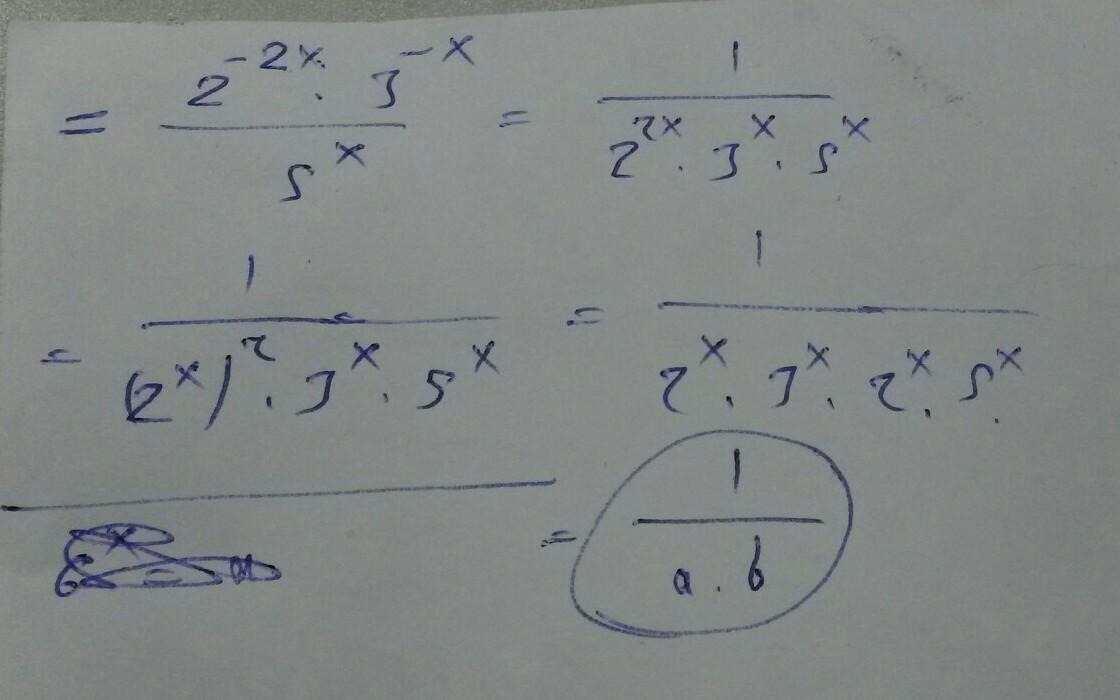 = 2^{-2x} · 3^{-x} / 5^x = 1 / 2^{2x} · 3^x · 5^x
= 1 / (2^x)^2 · 3^x · 5^x = 1 / 2^x · 3^x · 2^x · 5^x
= 1 / a · b